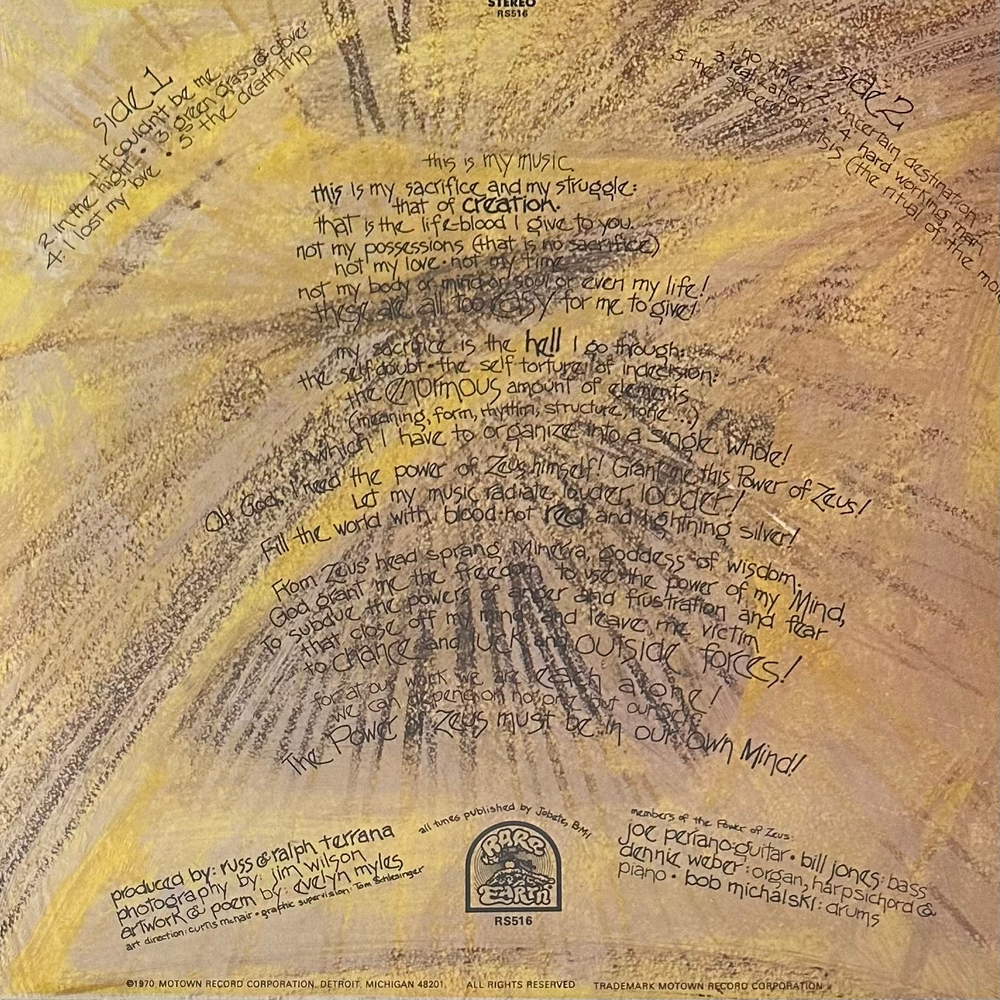 STEREO
RS516
side 1
1. it couldn't be me
2. in the night • 3. green grass & clover
4. i lost my love • 5. the death trip
side 2
1. no time • 2. uncertain destination
3. realization • 4. hard working man
5. the sorcerer of isis (the ritual of the mo
this is my music
this is my sacrifice and my struggle:
that of creation.
that is the life-blood I give to you.
not my possessions (that is no sacrifice)
not my love • not my time
not my body or mind or soul or even my life!
these are all too easy for me to give!
my sacrifice is the hell I go through:
the self doubt • the self torture! of indecision:
the enormous amount of elements
(meaning, form, rhythm, structure, tone...)
which I have to organize into a single whole!
Oh God, I need the power of Zeus himself! Grant me this Power of Zeus!
Let my music radiate louder, louder!
Fill the world with blood-hot red and lightning silver!
From Zeus' head sprang Minerva, goddess of wisdom.
God grant me the freedom to use the power of my Mind,
to subdue the powers of anger and frustration and fear
that close off my mind and leave me victim
to chance and luck and outside forces!
for at our work we are each alone!
we can depend on no one but ourselves
The Power of Zeus must be in our own Mind!
all tunes published by Jobete, BMI
produced by: russ & ralph terrana
photography by: jim wilson
artwork & poem by: evelyn myles
art direction: curtis mcnair • graphic supervision: Tom Schlesinger
RARE
EARTH
RS516
members of the Power of Zeus:
joe periano: guitar • bill jones: bass
dennie weber: organ, harpsichord &
piano • bob michalski: drums
©1970 MOTOWN RECORD CORPORATION, DETROIT, MICHIGAN 48201 ALL RIGHTS RESERVED TRADEMARK MOTOWN RECORD CORPORATION